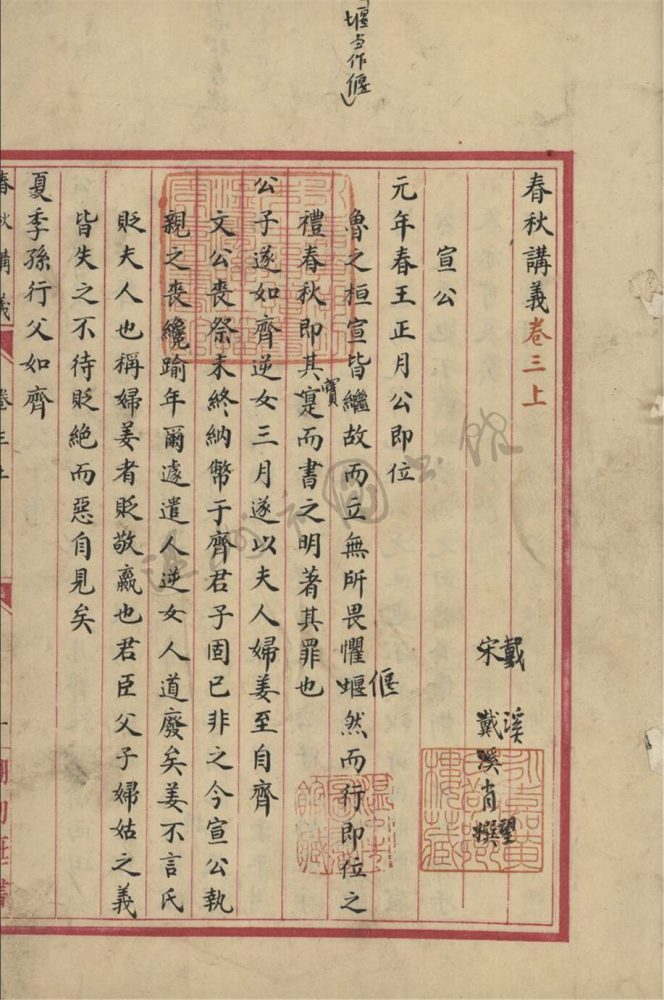 堰當作偃
春秋講義卷三上
宋戴溪撰
戴溪肖望
宣公
元年春王正月公即位
魯之桓宣皆繼故而立無所畏懼堰然而行即位之
偃
禮春秋即其寔而書之明著其罪也
實
公子遂如齊逆女三月遂以夫人婦姜至自齊
文公喪祭未終納幣于齊君子固已非之今宣公執
親之喪纔踰年爾遽遣人逆女人道廢矣姜不言氏
貶夫人也稱婦姜者貶敬嬴也君臣父子婦姑之義
皆失之不待貶絕而惡自見矣
夏季孫行父如齊
春秋講義 卷三上